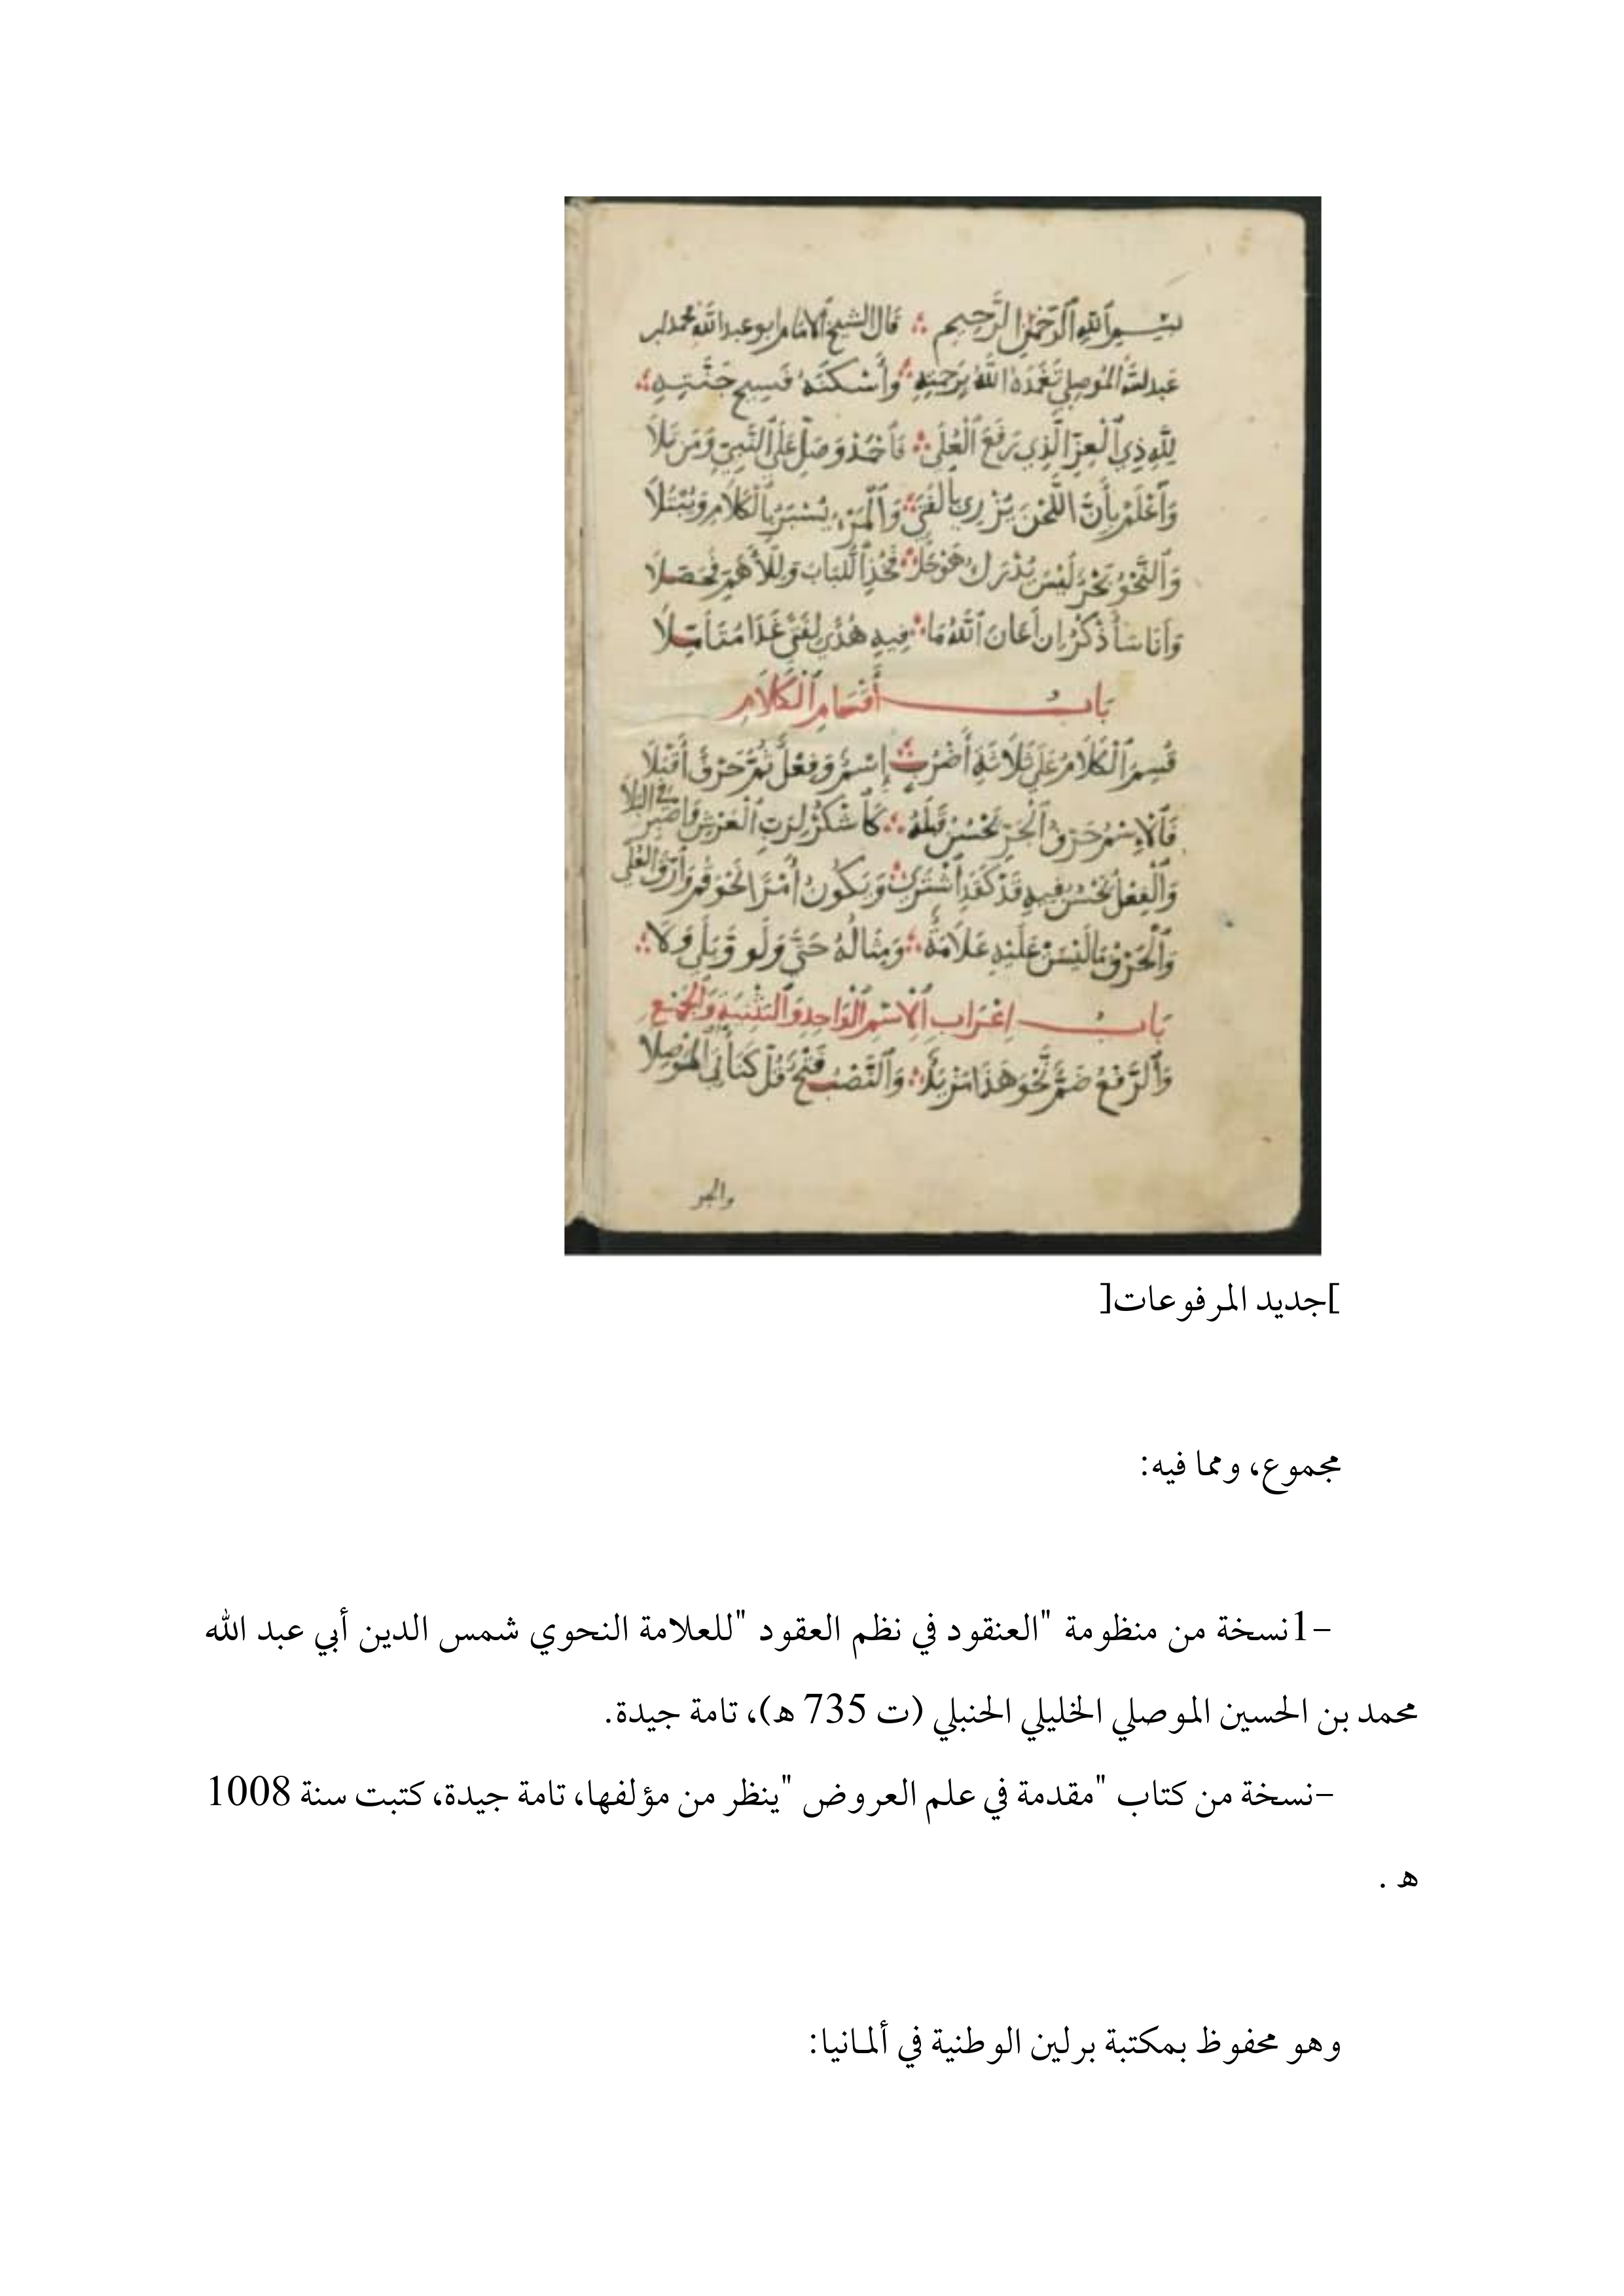 بِسْمِ ٱللهِ ٱلرَّحْمٰنِ ٱلرَّحِيمِ ∴ قَالَ الشيخ الامام ابو عبد الله محمد بن
عَبدالله المُوصِلي تَغَمَّدَهُ اللهُ بِرَحْمَتِهِ ∴ وَأَسْكَنَهُ فَسِيحَ جَنَّتِهِ ∴
لِلّٰهِ ذِي ٱلْعِزِّ ٱلَّذِي رَفَعَ ٱلْعُلَى ∴ فَٱحْمَدْ وَصَلِّ عَلَى ٱلنَّبِيِّ وَمَن تَلَا
وَٱعْلَمْ بِأَنَّ اللَّحْنَ يُزْرِي بِالفَتَى ∴ وَٱلْمَرْءُ يُسْتَبَرُ بِالْكَلَامِ وَيُبْتَلَا
وَٱلنَّحْوُ بَحْرٌ لَيْسَ يُدْرَكُ هَوْ ∴ فَخُذِ ٱللُّبَابَ وَلِلْأَهَمِّ فَحَصِّلَا
وَأَنَا سَأَذْكُرُ إِن أَعَانَ ٱللّٰهُ مَا ∴ فِيهِ هُدًى لِفَتًى غَدَا مُتَأَمِّلَا
بَابُ أَقْسَامِ ٱلْكَلَامِ
قُسِمَ ٱلْكَلَامُ عَلَى ثَلَاثَةِ أَضْرُبٍ ∴ إِسْمٌ وَفِعْلٌ ثُمَّ حَرْفٌ أَقْبَلَا
فَٱلْاِسْمُ حَرْفُ ٱلْجَرِّ يَحْسُنُ قَبْلَهُ ∴ كَٱشْكُرْ لِرَبِّ ٱلْعَرْشِ وَاصْبِرْ فِي البَلَا
وَٱلْفِعْلُ يَحْسُنُ فِيهِ قَدْ كَقَدِ ٱشْتَرَى ∴ وَيَكُونُ أَمْرًا نَحْوَ قُمْ وَٱرْقَ العُلَى
وَٱلْحَرْفُ مَا لَيْسَ عَلَيْهِ عَلَامَةٌ ∴ وَمِثَالُهُ حَتَّى وَلَو وَبَلَى وَلَا ∴
بَابُ إِعْرَابِ ٱلْاِسْمِ ٱلْوَاحِدِ وَٱلتَّثْنِيَةِ وَٱلْجَمْعِ
وَٱلرَّفْعُ ضَمٌّ نَحْوَ هَذَا مَزْيَدٌ ∴ وَٱلنَّصْبُ فَتْحٌ قُلْ أَبِي الْمَوْصِلَا
والجر
]جديد المرفوعات[
مجموع، ومما فيه:
-1نسخة من منظومة "العنقود في نظم العقود "للعلامة النحوي شمس الدين أبي عبد الله
محمد بن الحسين الموصلي الخليلي الحنبلي (ت 735 ه)، تامة جيدة.
-نسخة من كتاب "مقدمة في علم العروض "ينظر من مؤلفها، تامة جيدة، كتبت سنة 1008
ه .
وهو محفوظ بمكتبة برلين الوطنية في ألمانيا: